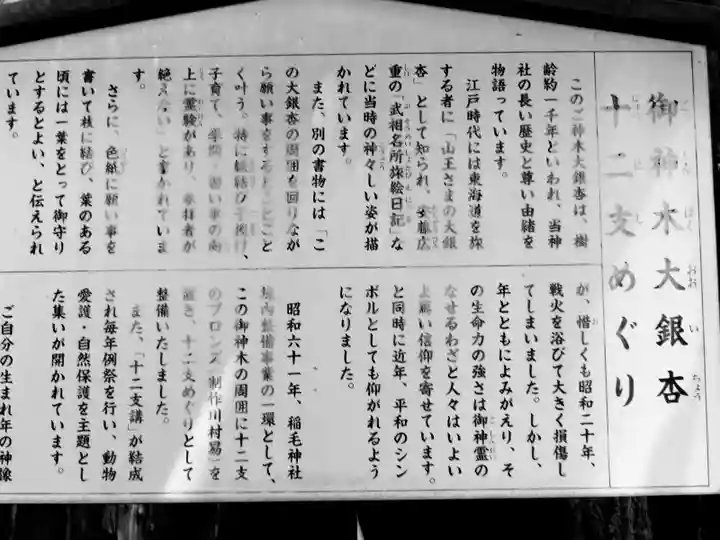 御神木大銀杏
十二支めぐり
このご神木大銀杏は、樹
齢約一千年といわれ、当神
社の長い歴史と尊い由緒を
物語っています。
江戸時代には東海道を旅
する者に「山王さまの大銀
杏」として知られ、安藤広
重の「武相名所旅絵日記」な
どに当時の神々しい姿が描
かれています。
また、別の書物には「こ
の大銀杏の周囲を回りなが
ら願い事をすると、ことご
とく叶う。特に縁結び、
子育て、学問、習い事の向
上に霊験があり、参拝者が
絶えない」と書かれていま
す。
さらに、色紙に願い事を
書いて枝に結び、葉のある
頃には一葉をとって御守り
とするとよい、と伝えられ
ています。
が、惜しくも昭和二十年、
戦火を浴びて大きく損傷し
てしまいました。しかし、
年とともによみがえり、そ
の生命力の強さは御神霊の
なせるわざと人々はいよい
よ厚い信仰を寄せています。
と同時に近年、平和のシン
ボルとしても仰がれるよう
になりました。
昭和六十一年、稲毛神社
境内整備事業の一環として、
この御神木の周囲に十二支
のブロンズ（制作川村易）を
置き、十二支めぐりとして
整備いたしました。
また、「十二支講」が結成
され毎年例祭を行い、動物
愛護・自然保護を主題とし
た集いが開かれています。
ご自分の生まれ年の神像